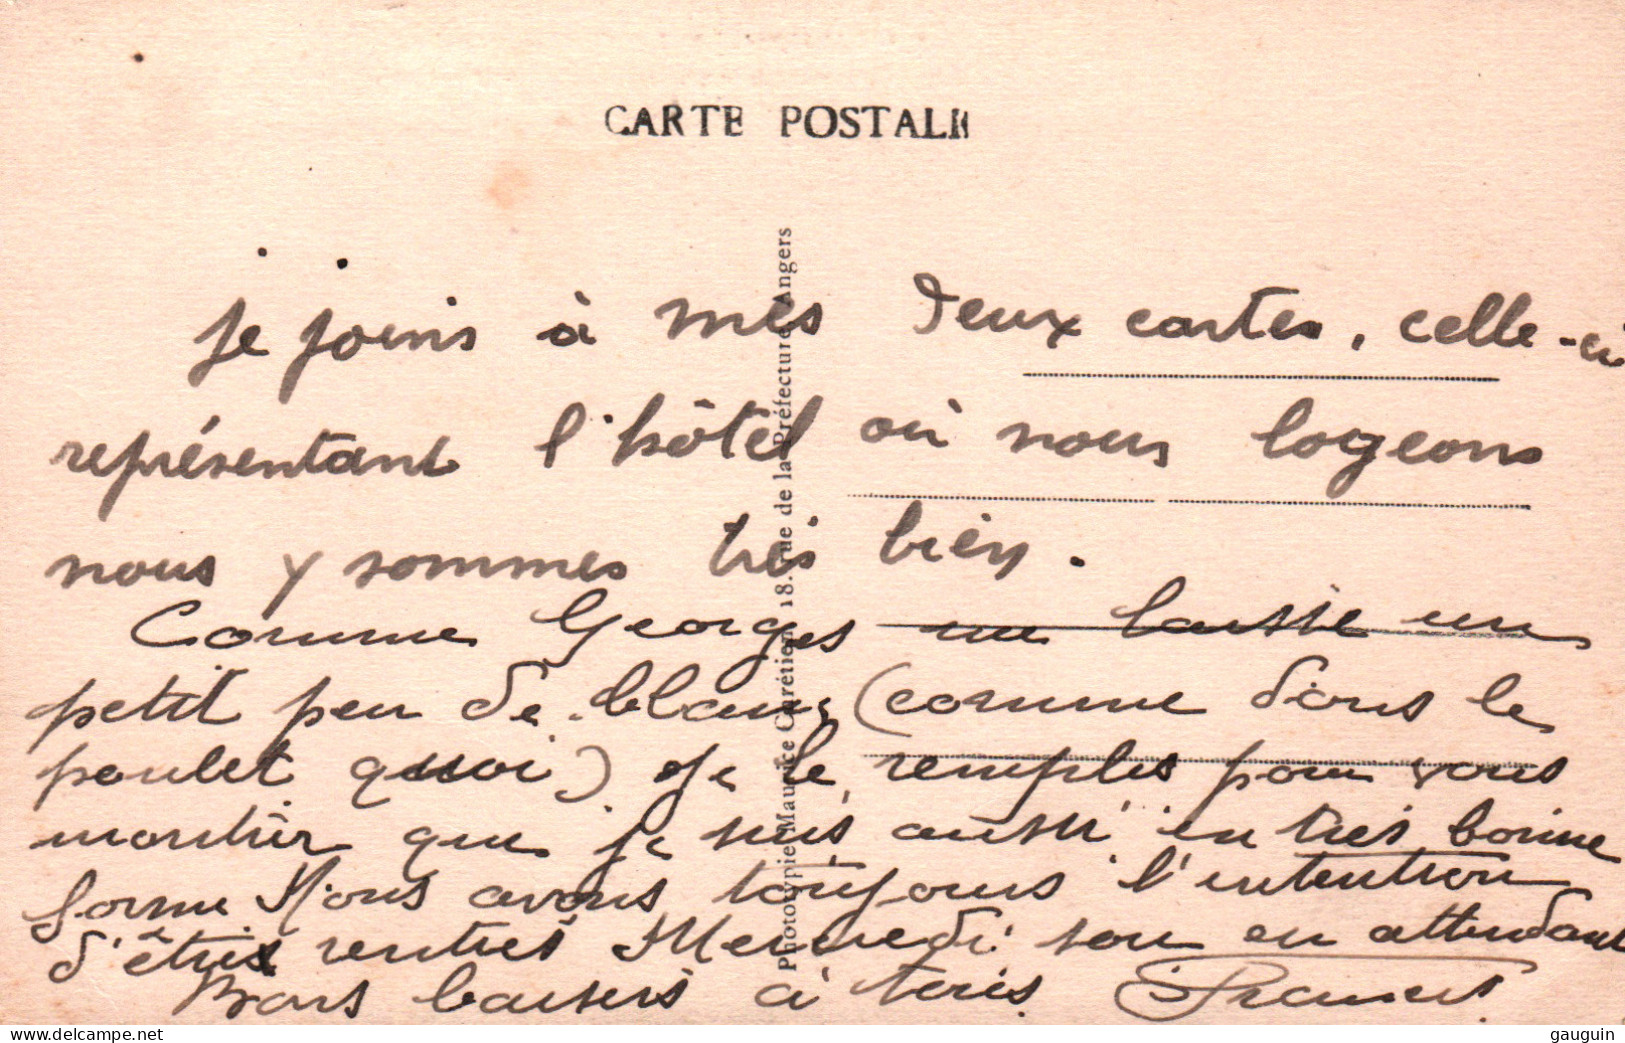 CARTE POSTALE
je joins à mes deux cartes, celle-ci
représentant l'hôtel où nous logeons
nous y sommes très bien.
Comme Georges me laisse un
petit peu de blanc (comme dans le
poulet quoi) je le remplis pour vous
montrer que je suis aussi en très bonne
forme Nous avons toujours l'intention
d'êtres rentrés Mercredi soir en attendant
Bons baisers à tous. Francis
Phototypie Maurice Carétion 18. rue de la Préfecture Angers
gauguin
delcampe.net